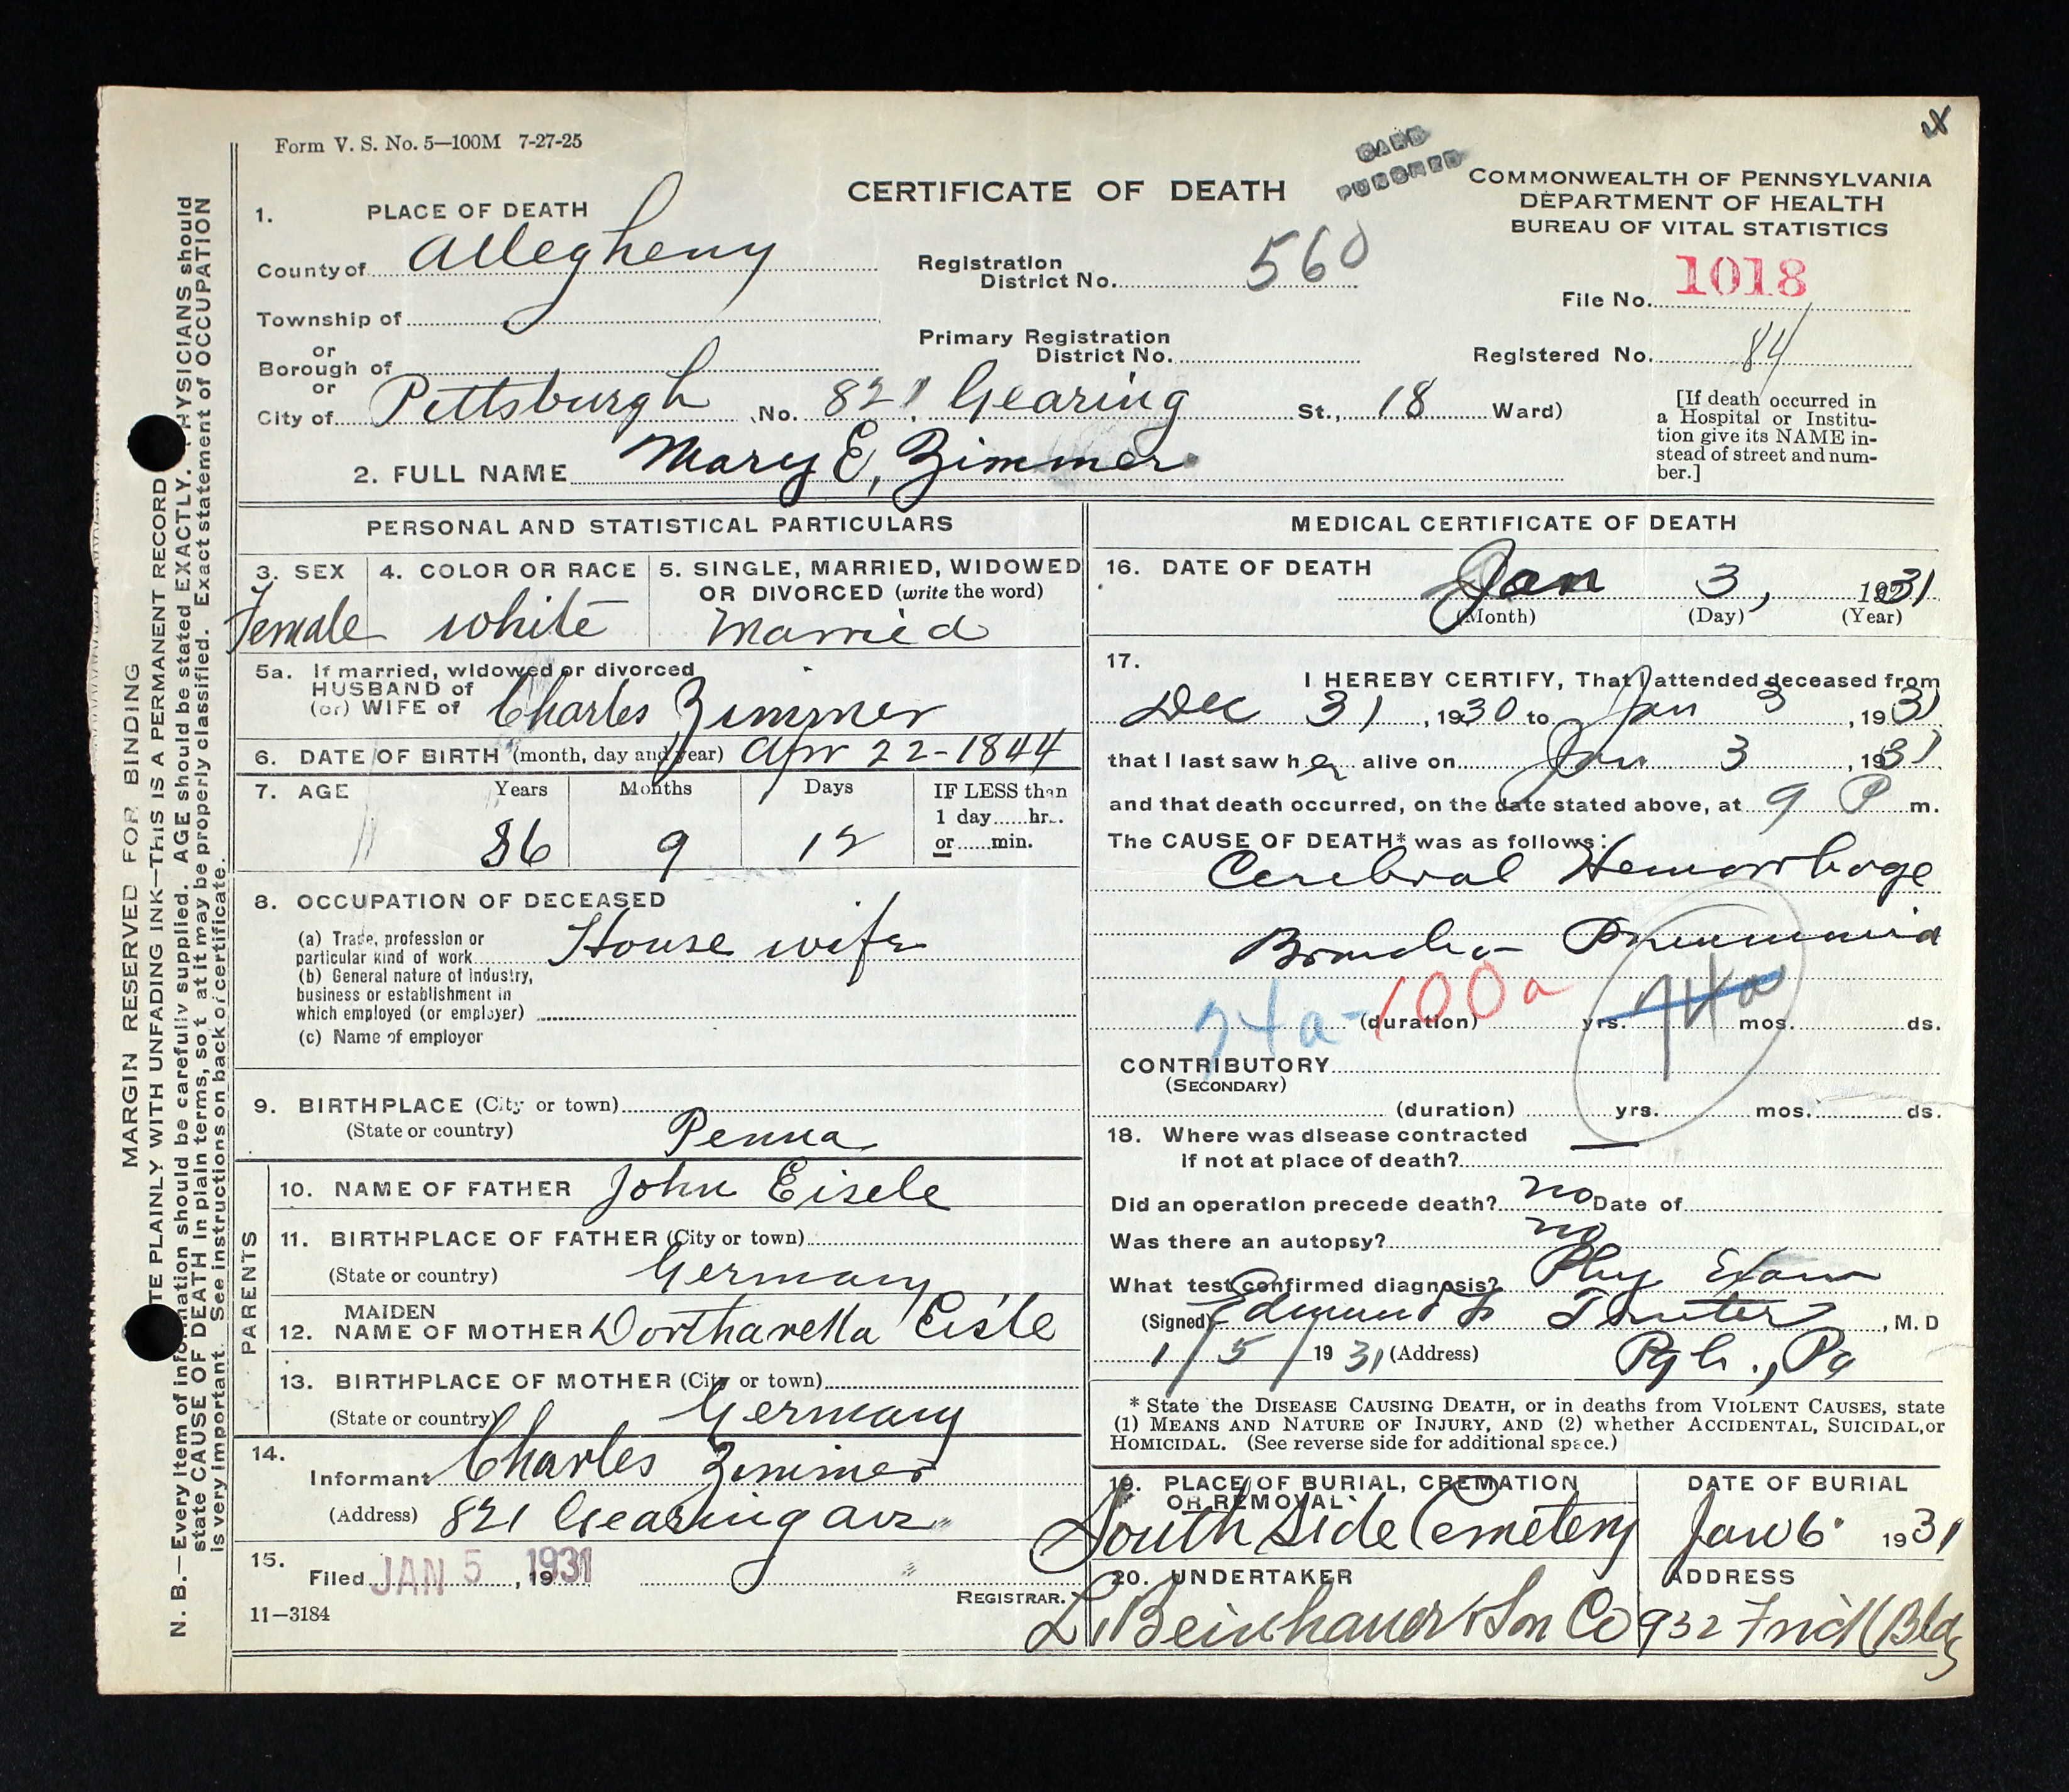 Form V. S. No. 5—100M 7-27-25
CARD PUNCHED
CERTIFICATE OF DEATH
COMMONWEALTH OF PENNSYLVANIA
DEPARTMENT OF HEALTH
BUREAU OF VITAL STATISTICS
1. PLACE OF DEATH
County of Allegheny
Registration District No. 560
File No. 1018
Township of
or
Borough of
Primary Registration District No.
Registered No. 84
or
City of Pittsburgh No. 821 Gearing St., 18 Ward)
[If death occurred in
a Hospital or Institu-
tion give its NAME in-
stead of street and num-
ber.]
2. FULL NAME Mary E. Zimmer
PERSONAL AND STATISTICAL PARTICULARS
3. SEX
Female
4. COLOR OR RACE
White
5. SINGLE, MARRIED, WIDOWED
OR DIVORCED (write the word)
Married
5a. If married, widowed or divorced
HUSBAND of
(or) WIFE of Charles Zimmer
6. DATE OF BIRTH (month, day and year) Apr 22-1844
7. AGE Years Months Days IF LESS than
1 day......hr..
86 9 12 or......min.
8. OCCUPATION OF DECEASED
(a) Trade, profession or
particular kind of work House wife
(b) General nature of industry,
business or establishment in
which employed (or employer)
(c) Name of employer
9. BIRTHPLACE (City or town)
(State or country) Penna
PARENTS
10. NAME OF FATHER John Eisele
11. BIRTHPLACE OF FATHER (City or town)
(State or country) Germany
MAIDEN
12. NAME OF MOTHER Dortharella Eisle
13. BIRTHPLACE OF MOTHER (City or town)
(State or country) Germany
14.
Informant Charles Zimmer
(Address) 821 Gearing ave
15.
Filed JAN 5, 1931
REGISTRAR.
11—3184
MEDICAL CERTIFICATE OF DEATH
16. DATE OF DEATH Jan 3, 1931
(Month) (Day) (Year)
17.
I HEREBY CERTIFY, That I attended deceased from
Dec 31, 1930 to Jan 3, 1931
that I last saw her alive on Jan 3, 1931
and that death occurred, on the date stated above, at 9 P m.
The CAUSE OF DEATH* was as follows:
Cerebral Hemorrhage
Broncho- Pneumonia
74a-100a 74a
(duration) yrs. mos. ds.
CONTRIBUTORY
(SECONDARY)
(duration) yrs. mos. ds.
18. Where was disease contracted
if not at place of death? —
Did an operation precede death? no Date of
Was there an autopsy? no
What test confirmed diagnosis? Phy Exam
(Signed) Edmund , M. D
1/5/1931 (Address) Pgh., Pa
* State the DISEASE CAUSING DEATH, or in deaths from VIOLENT CAUSES, state
(1) MEANS AND NATURE OF INJURY, AND (2) whether ACCIDENTAL, SUICIDAL, or
HOMICIDAL. (See reverse side for additional space.)
19. PLACE OF BURIAL, CREMATION
OR REMOVAL
South Side Cemetery
DATE OF BURIAL
Jan 6 1931
20. UNDERTAKER
L. Beinhauer & Son Co
ADDRESS
932 Frick Bldg
MARGIN RESERVED FOR BINDING
TE PLAINLY WITH UNFADING INK—THIS IS A PERMANENT RECORD
N. B.—Every item of information should be carefully supplied. AGE should be stated EXACTLY. PHYSICIANS should
state CAUSE OF DEATH in plain terms, so t at it may be properly classified. Exact statement of OCCUPATION
is very important. See instructions on back of certificate.